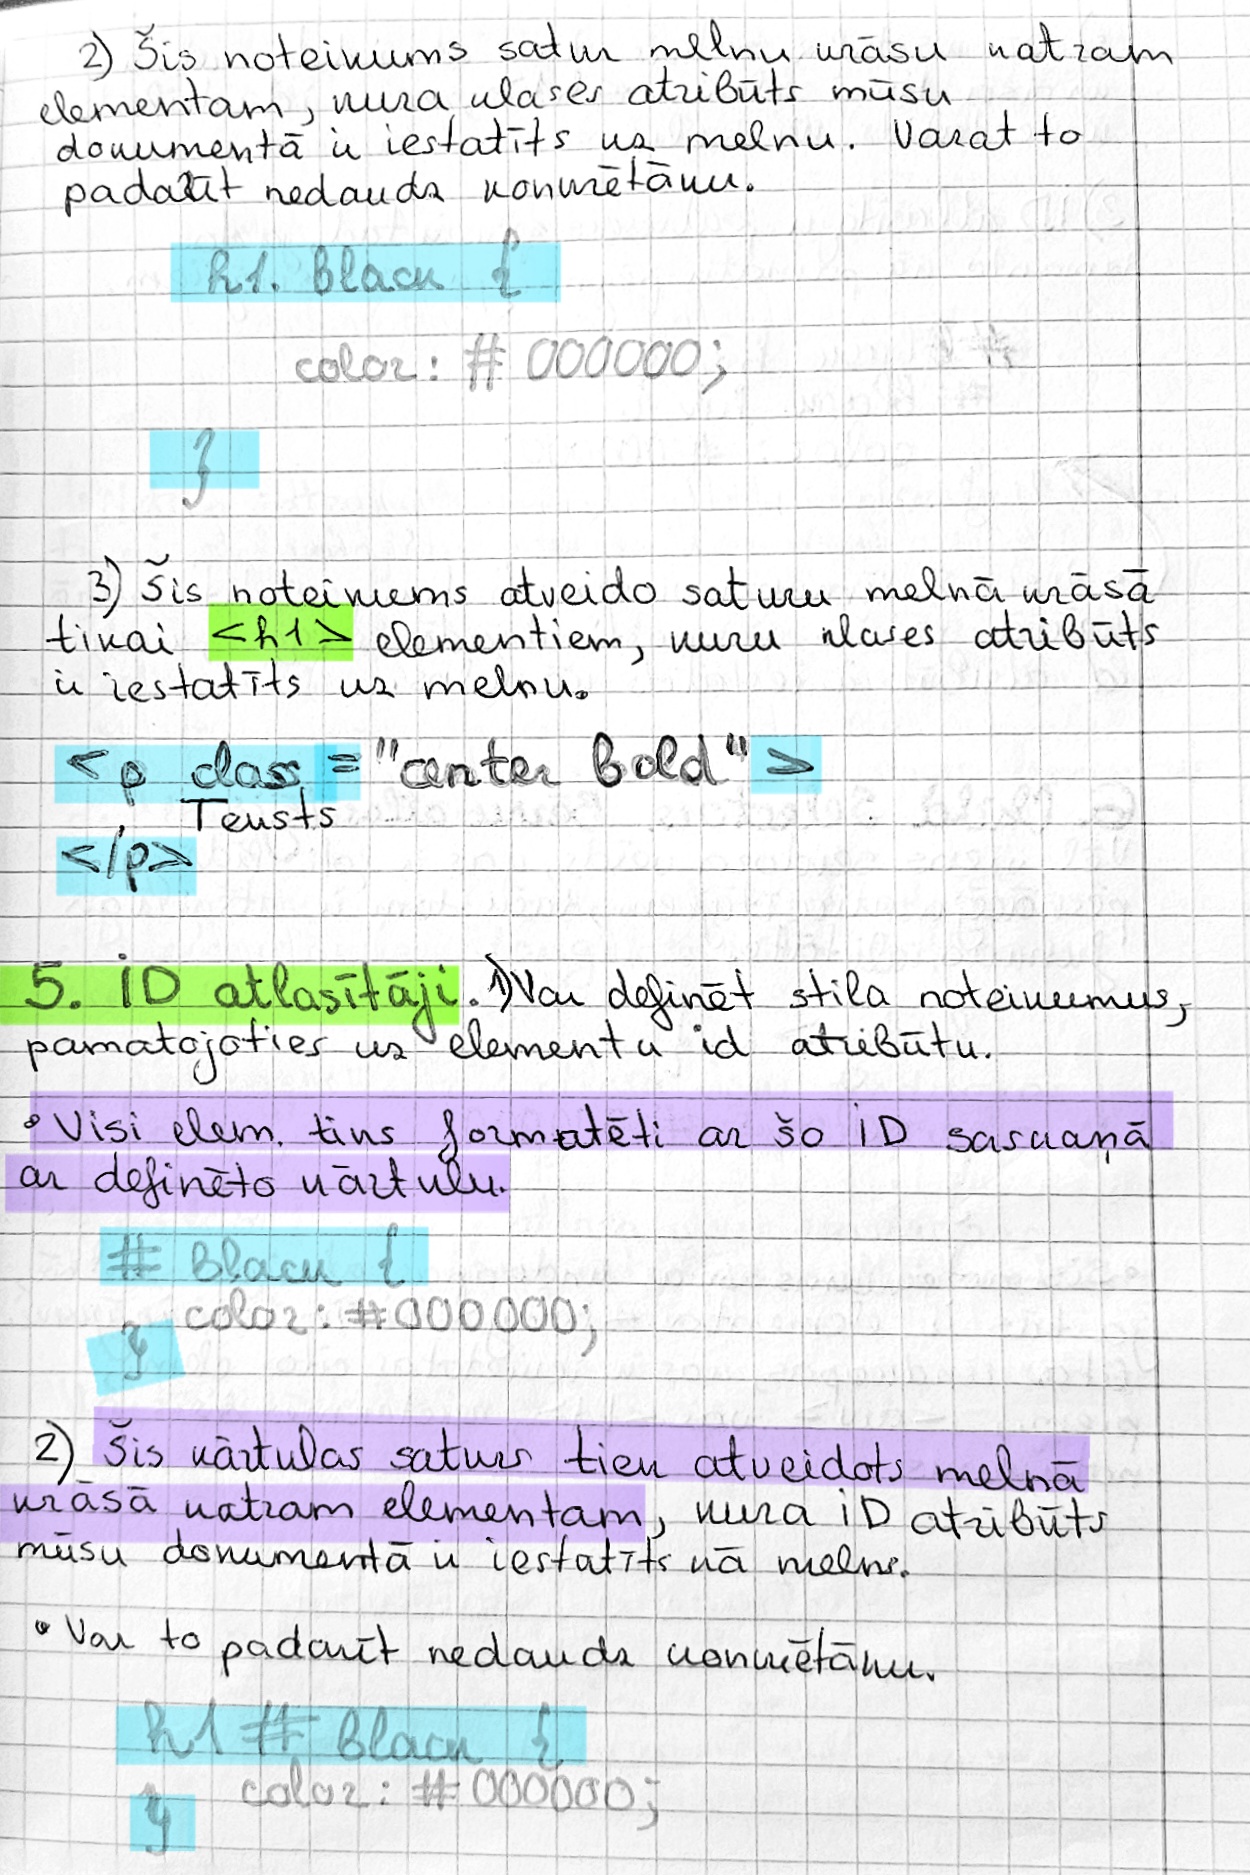 2) Šis noteikums satur melnu krāsu katram
elementam, kura klases atribūts mūsu
dokumentā ir iestatīts uz melnu. Varat to
padarīt nedaudz konkrētāku.
h1. black {
color: # 000000;
}
3) Šis noteikums atveido saturu melnā krāsā
tikai <h1> elementiem, kuru klases atribūts
ir iestatīts uz melnu.
<p class = "center bold" >
Teksts
</p>
5. iD atlasītāji. 1) Var definēt stila noteikumus,
pamatojoties uz elementu id atribūtu.
• Visi elem. tiks formatēti ar šo iD saskaņā
ar definēto kārtulu.
# black {
color: #000000;
}
2) Šis kārtulas saturs tiek atveidots melnā
krāsā katram elementam, kura iD atribūts
mūsu dokumentā ir iestatīts kā melns.
• Var to padarīt nedaudz konkrētāku.
h1 # black {
color: # 000000;
}